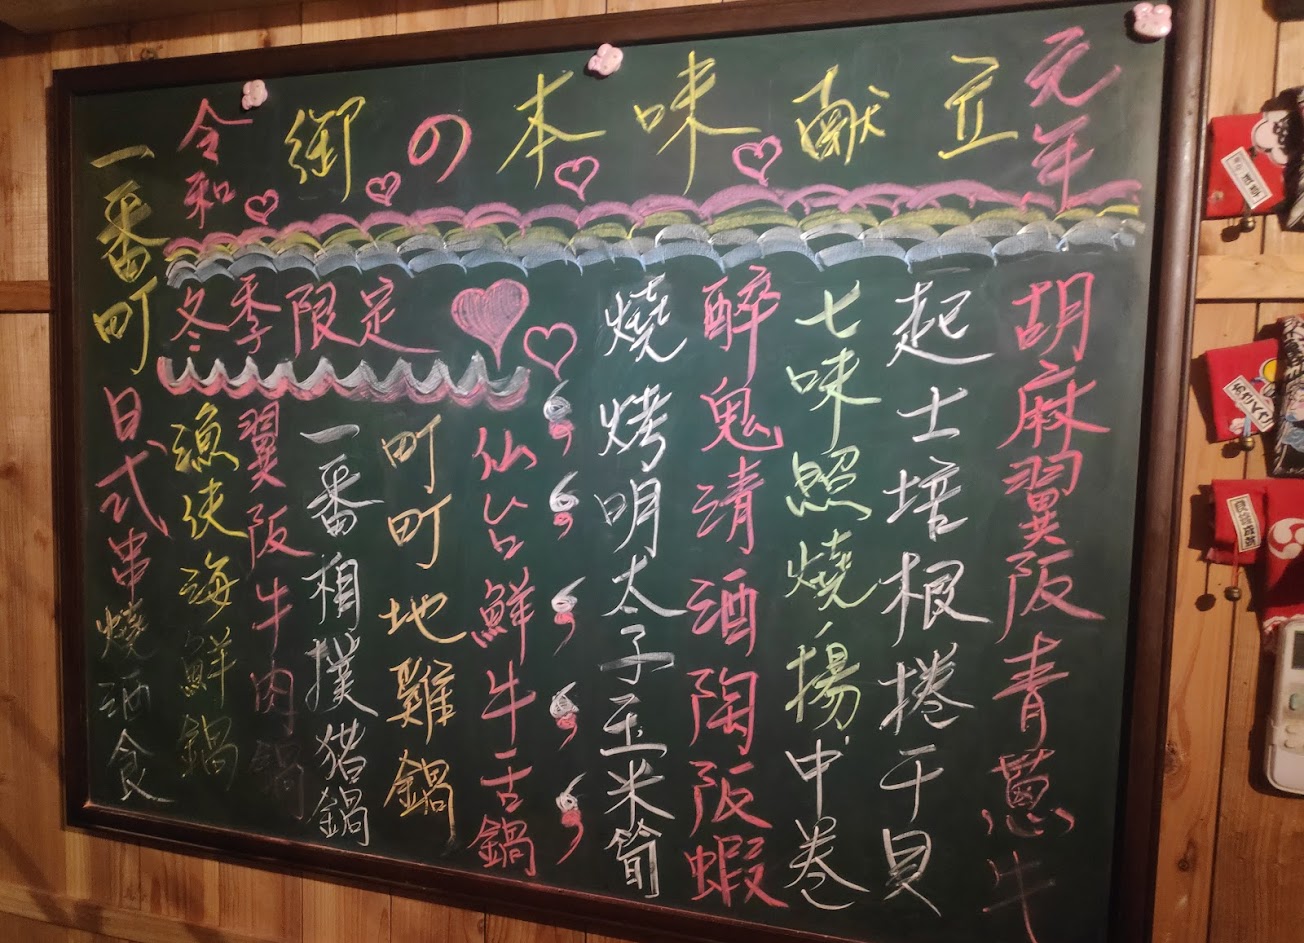 令和
御の本味献立
元年
胡麻翼阪青蔥牛
起士培根捲干貝
七味照燒揚中卷
醉鬼清酒陶阪蝦
燒烤明太子玉米筍
冬季限定
仙台鮮牛舌鍋
町町地雞鍋
一番相撲猪鍋
翼阪牛肉鍋
漁伕海鮮鍋
一番町日式串燒酒食